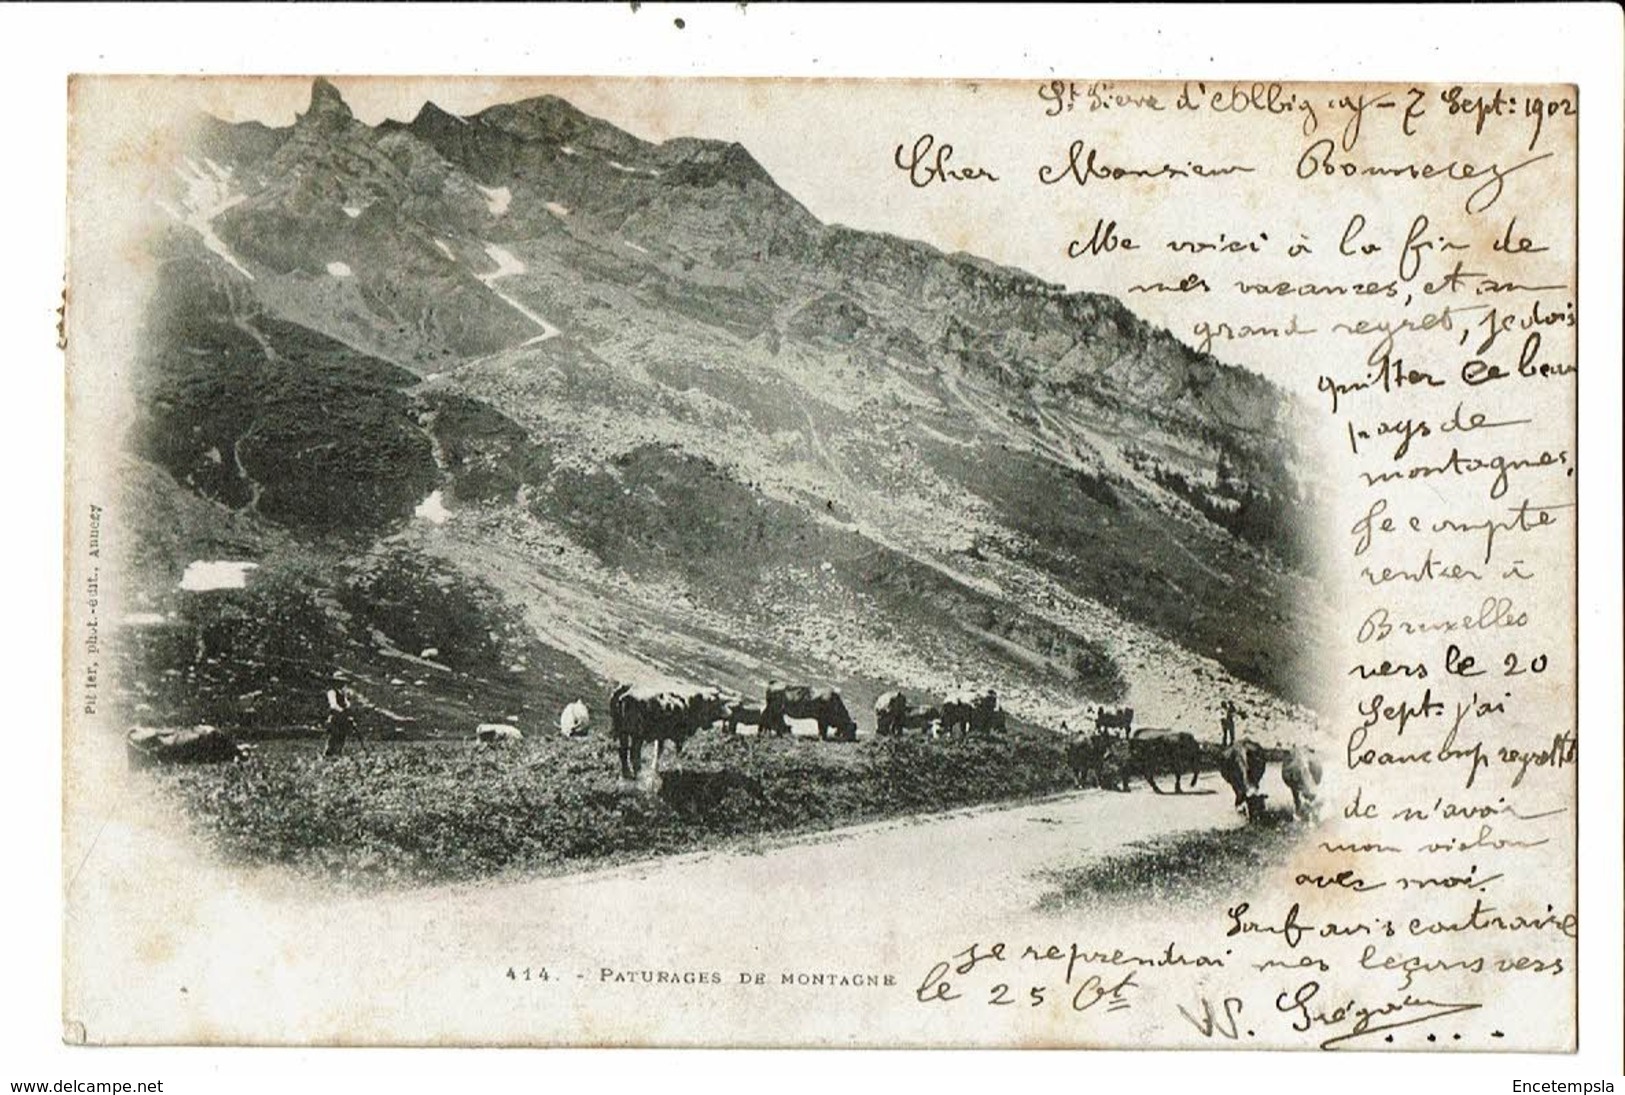 St Pierre d'Albigny - 7 Sept: 1902
Cher Monsieur
Me voici à la fin de
mes vacances, et au
grand regret, je dois
quitter ce beau
pays de
montagnes,
Je compte
rentrer à
Bruxelles
vers le 20
Sept. j'ai
beaucoup regretté
de n'avoir
mon violon
avec moi.
Sauf avis contraire
je reprendrai mes leçons vers
le 25 Ct
414. - PATURAGES DE MONTAGNE
Pittier, phot.-édit., Annecy
www.delcampe.net
Encetempsla